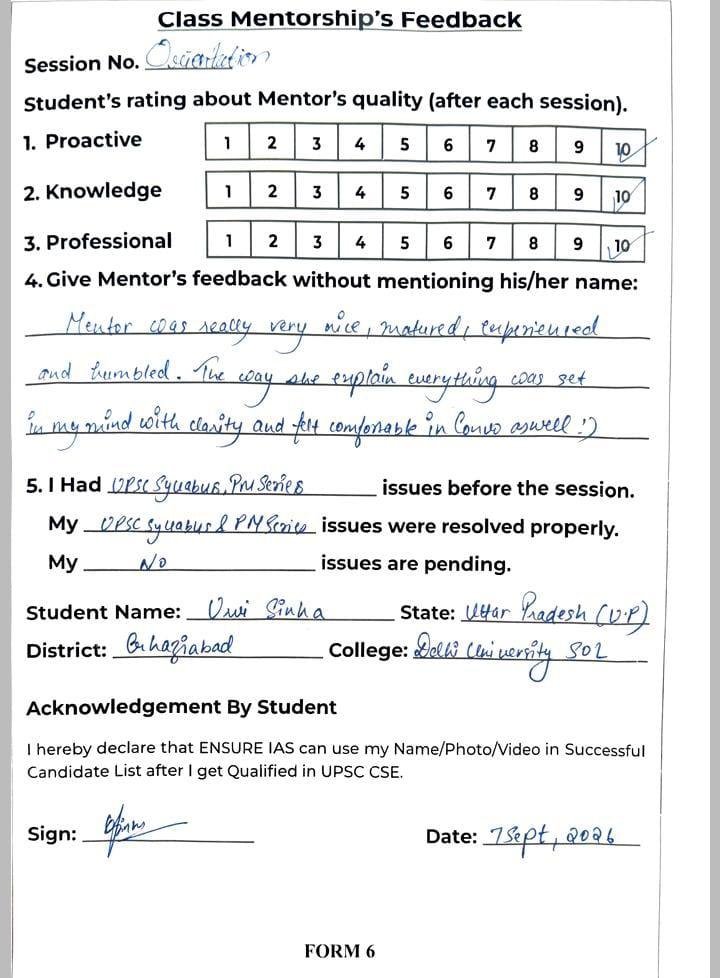 Class Mentorship's Feedback
Session No. Orientation
Student's rating about Mentor's quality (after each session).
1. Proactive 1 2 3 4 5 6 7 8 9 10
2. Knowledge 1 2 3 4 5 6 7 8 9 10
3. Professional 1 2 3 4 5 6 7 8 9 10
4. Give Mentor's feedback without mentioning his/her name:
Mentor was really very nice, matured, experienced
and humbled. The way she explain everything was set
in my mind with clarity and felt comfortable in Convo aswell :)
5. I Had UPSC Syllabus, PM Series issues before the session.
My UPSC Syllabus & PM Series issues were resolved properly.
My No issues are pending.
Student Name: Sinha State: Uttar Pradesh (U.P)
District: Ghaziabad College: Delhi University SOL
Acknowledgement By Student
I hereby declare that ENSURE IAS can use my Name/Photo/Video in Successful
Candidate List after I get Qualified in UPSC CSE.
Sign: Date: 7 Sept, 2026
FORM 6